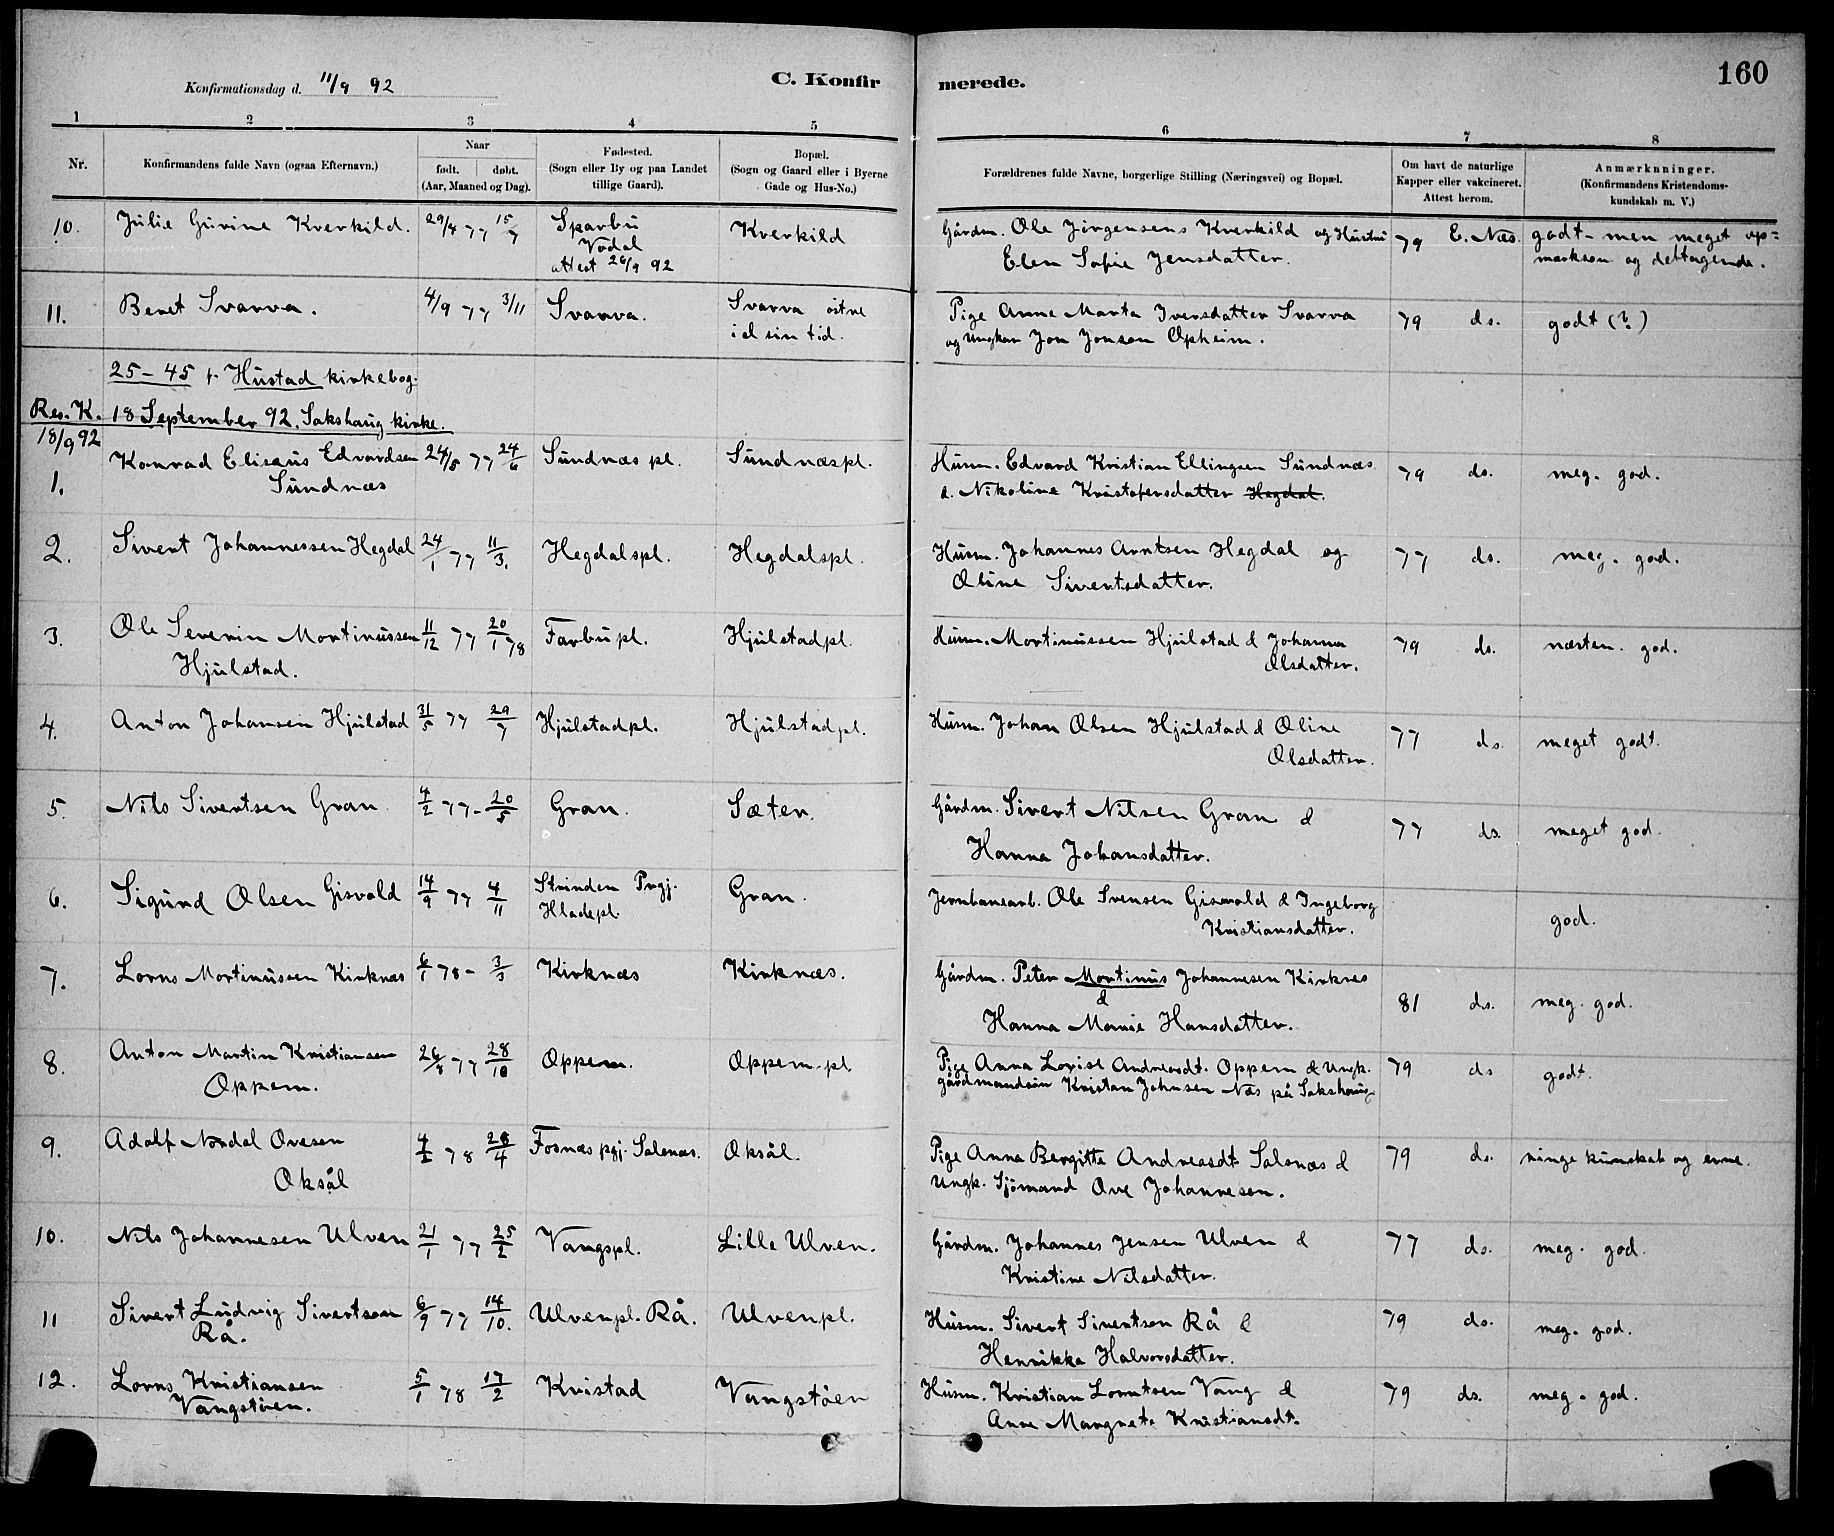 Konfirmationsdag d. 11/9 92
C. Konfirmerede.
160
1 2 3 4 5 6 7 8
Nr. Konfirmandens fulde Navn (ogsaa Efternavn.) Naar født. døbt. (Aar, Maaned og Dag). Fødested. (Sogn eller By og paa Landet tillige Gaard). Bopæl. (Sogn og Gaard eller i Byerne Gade og Hus-No.) Forældrenes fulde Navne, borgerlige Stilling (Næringsvei) og Bopæl. Om havt de naturlige Kapper eller vakcineret. Attest herom. Anmærkninger. (Konfirmandens Kristendoms- kundskab m. V.)
10. Julie Gurine Kverkild. 29/4 77 15/7 Sparbu Kverkild Gårdm. Ole Jörgensens Kverkild og Hustru 79 E. Næs. godt - men meget op-
attest 26/9 92 Elen Sofie Jensdatter. marksom og deltagende.
11. Beret Svarva. 4/9 77 3/11 Svarva. Svarva östre Pige Anne Marta Iversdatter Svarva 79 ds. godt (?)
i el sin tid. og Ungkar Jon Jonson Opheim.
25-45 f. Hustad kirkebog.
Res. K. 18 September 92. Sakshaug kirke.
18/9 92
1. Konrad Elisæus Edvardsen 24/5 77 24/6 Sundnæs pl. Sundnæspl. Husm. Edvard Kristian Ellingsen Sundnæs 79 ds. meg. god.
Sundnæs & Nikoline Kristofersdatter Hegdal.
2. Sivert Johannessen Hegdal 24/1 77 11/3. Hegdalspl. Hegdalspl. Husm. Johannes Arntsen Hegdal og 77 ds. meg. god.
Oline Sivertsdatter.
3. Ole Severin Mortinussen 11/12 77 20/1 78 Farbupl. Hjulstadpl. Husm. Mortinussen Hjulstad & Johanna 79 ds. næsten god.
Hjulstad. Olsdatter.
4. Anton Johansen Hjulstad 31/5 77 29/7 Hjulstadpl. Hjulstadpl. Husm. Johan Olsen Hjulstad & Oline 77 ds. meget godt.
Olsdatter.
5. Nils Sivertsen Gran 4/2 77- 20/5 Gran. Sæter. Gårdm. Sivert Nilsen Gran & 77 ds. meget god.
Hanna Johansdatter.
6. Sigurd Olsen Gisvold 14/9 77 4/11 Strinden Prgj. Gran. Jernbanearb. Ole Svensen Gisvold & Ingeborg god.
Hladepl. Kristiansdatter.
7. Lorns Mortinussen Kirknæs 6/1 78- 3/3 Kirknæs Kirknæs. Gårdm. Peter Mortinus Johannesen Kirknes 81 ds. meg. god.
&
Hanna Marie Hansdatter.
8. Anton Martin Kristiansen 26/8 77 28/10 Oppem. Oppem-pl. Pige Anna Lovise Andreasdt. Oppem & Ungk. 79 ds godt.
Oppem. gårdmandssön Kristan Johnsen Næs på Sakshaug
9. Adolf Nordal Ovesen 4/2 78 28/4 Fosnæs pgj. Salsnæs. Oksål. Pige Anna Bergitte Andreasdt. Salsnæs & 79 ds. ringe kunskab og evne.
Oksål Ungk. Sjömand Ove Johannesen.
10. Nils Johannesen Ulven 21/1 77 25/2 Vangspl. Lille Ulven. Gårdm. Johannes Jensen Ulven & 77 ds. meg. god.
Kristine Nilsdatter.
11 Sivert Ludvig Sivertsen 6/9 77 14/10. Ulvenpl. Rå. Ulvenpl. Husm. Sivert Sivertsen Rå & 79 ds. meg. god.
Rå. Henrikka Halvorsdatter.
12. Lorns Kristiansen 5/1 78 17/2 Kvistad Vangstöen Husm. Kristian Lorntsen Vang & 79 ds. meg. god.
Vangstöen. Anne Margrete Kristiansdt.